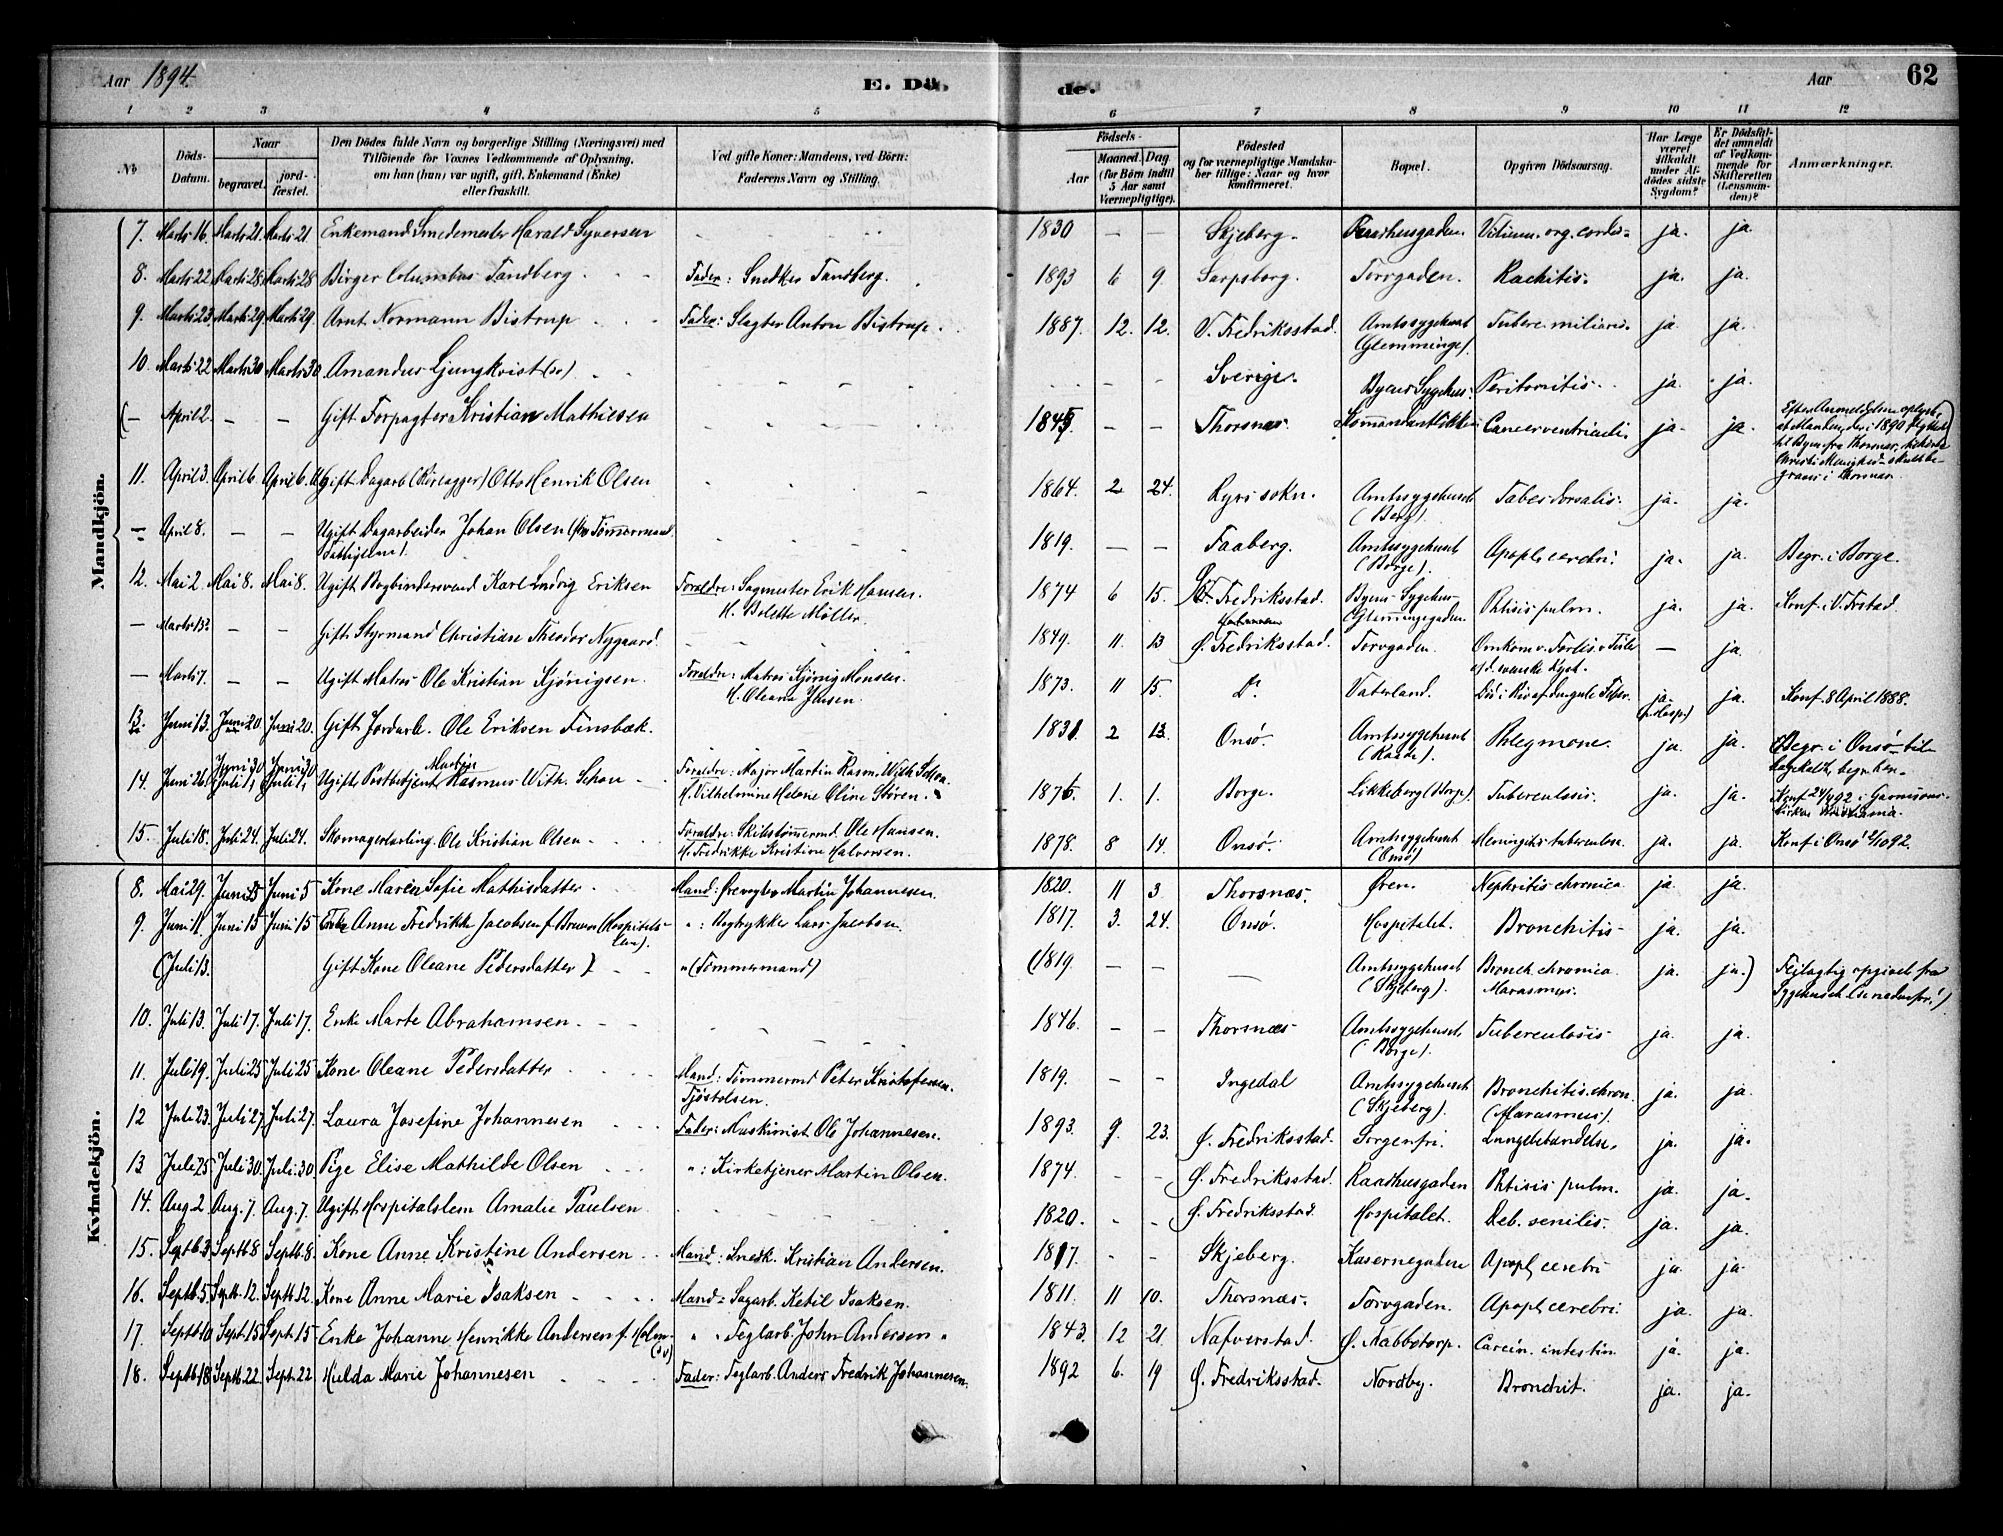 Aar 1894. E. Dö- de. Aar 62
1 2 3 4 5 6 7 8 9 10 11 12
No. Döds-Datum. Naar begravet. jord-fæstet. Den Dödes fulde Navn og borgerlige Stilling (Næringsvei) med Tilföiende for Voxnes Vedkommende af Oplysning, om han (hun) var ugift, gift, Enkemand (Enke) eller fraskilt. Ved gifte Koner: Mandens, ved Börn: Faderens Navn og Stilling. Födsels- Aar Maaned. Dag. (for Börn indtil 5 Aar samt Værnepligtige). Födested og for værnepligtige Mandskaber tillige: Naar og hvor konfirmeret. Bopæl. Opgiven Dödsaarsag. Har Læge været tilkaldt under Afdödes sidste Sygdom? Er Dödsfaldet anmeldt af Vedkommende for Skifteretten (Lensmanden)? Anmærkninger.
Mandkjön.
7. Marts 16. Marts 21. Marts 21. Enkemand Smedemester Harald Syversen - - 1830 - - Skjeberg. Raadhusgaden. Vitium org. cordis. ja. ja.
8. Marts 22 Marts 28 Marts 28 Birger Columbus Tandberg Fader: Snedker Tandberg. 1893 6 9. Sarpsborg. Torvgaden. Rachitis. ja. ja.
9. Marts 23. Marts 29. Marts 29. Arnt Normann Bistrup Fader: Slagter Anton Bistrup. 1887. 12. 12. V. Fredriksstad. Amtssygehuset (Glemminge). Tuberc. miliaris. ja. ja.
10. Marts 22 Marts 30 Marts 30. Amandus Ljungkvist (sv) - - Sverige. Byens Sygehus. Peritonitis. ja. ja.
(- April 2. - - Gift Forpagter Kristian Mathiesen - - 1845. - - Thorsnæs. Cancer ventriculi. ja. ja. Efter Anmeldelsen oplyst, at Manden, der i 1890 flyttede til Byen fra Thorsnæs, Christi Menighed skulde begraves i Thorsnæs.)
11. April 3. April 6. April 6. Gift Dagarb. Otto Henrik Olsen. - - 1864. 2 24. Ryrs sokn. Amtssygehuset (Berg). Tabes dorsalis. ja. ja.
- April 8. - - Ugift Dagarbeider Johan Olsen Tömmermand - - 1819. - - Faaberg. Amtssygehuset (Borge). Apopl. cerebri. ja. ja. Begr. i Borge.
12. Mai 2. Mai 8. Mai 8. Ugift Bogbindersvend Karl Ludvig Eriksen Foraldre: Sagmester Erik Hansen. H. Bolette Möller. 1874 6 15. Fredriksstad. Byens Sygehus Glemmingegaden. Phtisis pulm. ja. ja. Konf. i V. Frstad.
- Marts 13. - - Gift Styrmand Christian Theodor Nygaard. - - 1849. 11. 13 Ø. Fredriksstad. Torvgaden. Omkom v. Forlis v. - ja.
- Marts 7. - - Ugift Matros Ole Kristian Kjönigsen. Foraldre: Matros Kjönig Monsen. H. Oleana Jensen. 1873. 11 15. Do. Vaterland. Död i Rio af den gule Feber. ja. ja. Konf. 8 April 1888.
13. Juni 13. Juni 20 Juni 20. Gift Jordarb. Ole Eriksen Finsbæk. 1831 2 13. Onsö. Amtssygehuset (Raade). Phlegmone. ja. ja. Begr. i Onsö
14. Juni 26. Juni 30 Juli 1, Juni 30 Juli 1, Ugift Postbetjent Martin Rasmus With. Schou Foraldre: Major Martin Rasm. With Schou. H. Vilhelmine Helene Oline Stören. 1875. 1. 1. Borge. Likkeberg (Borge). Tuberculosis. ja. ja. Konf. 24/4 92 i Garnisons Kirken Kristiania.
15. Juli 18. Juli 24. Juli 24. Skomagerlærling Ole Kristian Olsen Foraldre: Skibstömmermd. Ole Hansen. H. Fredrikke Kristine Halvorsen. 1878. 8 14. Onsö. Amtssygehuset (Onsö) Meningitis tuberculosa. ja. ja. Konf. i Onsö 2/10 92.
Kvindekjön.
8. Mai 29. Juni 5 Juni 5 Kone Maren Sofie Mathisdatter Mand: Martin Johannesen. 1820. 11 3 Thorsnæs. Øren. Nephritis chronica ja. ja.
9. Juni 11. Juni 15 Juni 15 Enke Anne Fredrikke Jacobsen f. Bruun (Hospitalslem). ": Bogtrykker Lars Jacobsen. 1817. 3. 24. Onsö. Hospitalet. Bronchitis ja. ja.
(Juli 13. Gift Kone Oleane Pedersdatter) " (Tömmermand) (1819. - - - Amtssygehuset (Skjeberg). Bronch. chronica. Marasmus. ja. ja.) Feilagtig opgivet fra Sygehuset (se nedenfor!)
10. Juli 13. Juli 17. Juli 17. Enke Marte Abrahamsen. - - 1846. - - Thorsnæs Amtssygehuset (Borge). Tuberculosis ja. ja.
11. Juli 19. Juli 25 Juli 25 Kone Oleane Pedersdatter Mand: Tömmermd. Peter Kristofersen Tjöstolsen. 1819. - - Ingedal Amtssygehuset (Skjeberg). Bronchitis chron. (Marasmus). ja. ja.
12 Juli 23. Juli 27. Juli 27. Laura Josefine Johannesen Fader: Maskinist Ole Johannesen. 1893. 9. 23. Ø. Fredriksstad. Sorgenfri. Lungebetændelse. ja. ja.
13 Juli 25 Juli 30. Juli 30. Pige Elise Mathilde Olsen ": Kirketjener Martin Olsen. 1874. - - Ø. Fredriksstad. Raadhusgaden Phtisis pulm. ja. ja.
14. Aug. 2 Aug. 7. Aug. 7. Ugift Hospitalslem Amalie Paulsen - - 1820. - - Ø. Fredriksstad. Hospitalet. Deb. senilis. ja. ja.
15. Septb. 3 Septb. 8 Septb. 8. Kone Anne Kristine Andersen Mand: Snedk. Kristian Andersen. 1817. - - Skjeberg. Kasernegaden Apopl. cerebri ja. ja.
16. Septb. 5. Septb. 12. Septb. 12. Kone Anne Marie Isaksen Mand: Sagarb. Ketil Isaksen. 1811. 11 10. Thorsnæs. Torvgaden. Apopl. cerebri. ja. ja.
17. Septb. 10 Sept. 15 Sept. 15 Enke Johanne Henrikke Andersen f. Holm (sv) " " Teglarb. John Andersen " 1843. 12 21. Nafverstad. Ø. Nabbetorp. Carcin. intestin. ja. ja.
18. Septb. 18 Septb. 22 Sept. 22 Hilda Marie Johannesen Fader: Teglarb. Anders Fredrik Johannesen. 1892 6. 19 Ø. Fredriksstad. Nordby. Bronchit. ja. ja.